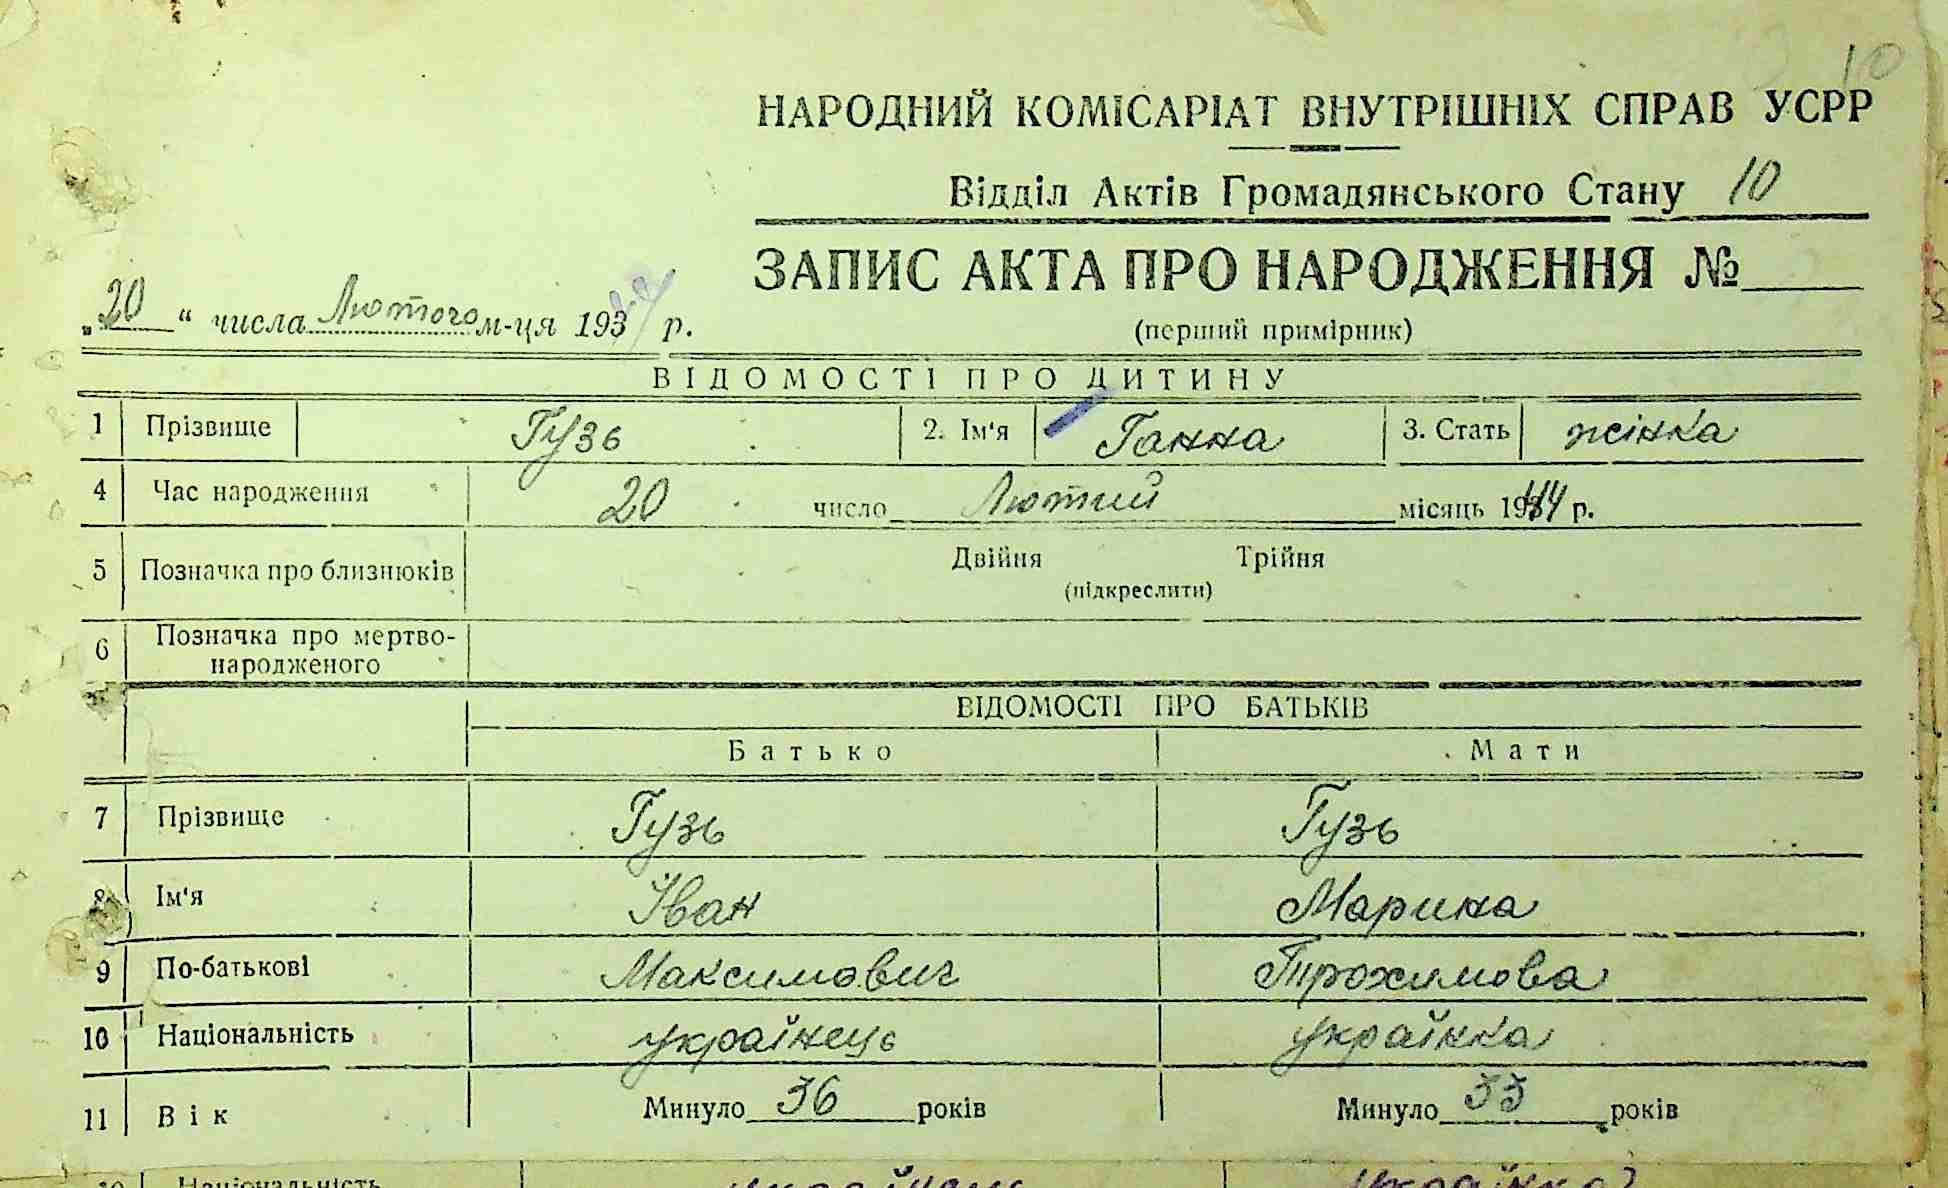 10
НАРОДНИЙ КОМІСАРІАТ ВНУТРІШНІХ СПРАВ УСРР
Відділ Актів Громадянського Стану 10
ЗАПИС АКТА ПРО НАРОДЖЕННЯ №
„20“ числа Лютого м-ця 1944 р.
(перший примірник)
ВІДОМОСТІ ПРО ДИТИНУ
1 Прізвище Гузь 2. Ім'я Ганна 3. Стать жінка
4 Час народження 20 число Лютий місяць 1944 р.
5 Позначка про близнюків Двійня Трійня
(підкреслити)
6 Позначка про мертво-
народженого
ВІДОМОСТІ ПРО БАТЬКІВ
Батько Мати
7 Прізвище Гузь Гузь
8 Ім'я Іван Марина
9 По-батькові Максимович Трохимова
10 Національність українець українка
11 Вік Минуло 36 років Минуло 33 років
10 Національність українець українка